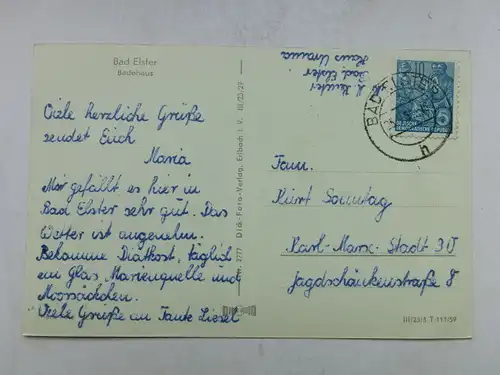 Bad Elster
Badehaus
Viele herzliche Grüße
sendet Euch
Maria
Mir gefällt es hier in
Bad Elster sehr gut. Das
Wetter ist angenehm.
Bekomme Diätkost, täglich
ein Glas Marienquelle und
Moorsäckchen.
Viele Grüße an Tante Liesel
Dick-Foto-Verlag, Erlbach i. V. III/23/27
2777
Bad Elster
Haus
BAD ELSTER
h
DEUTSCHE
DEMOKRATISCHE REPUBLIK
Fam.
Kurt Sonntag
Karl-Marx-Stadt 30
Jagdschänkenstraße 8
III/23/5 T 117/59